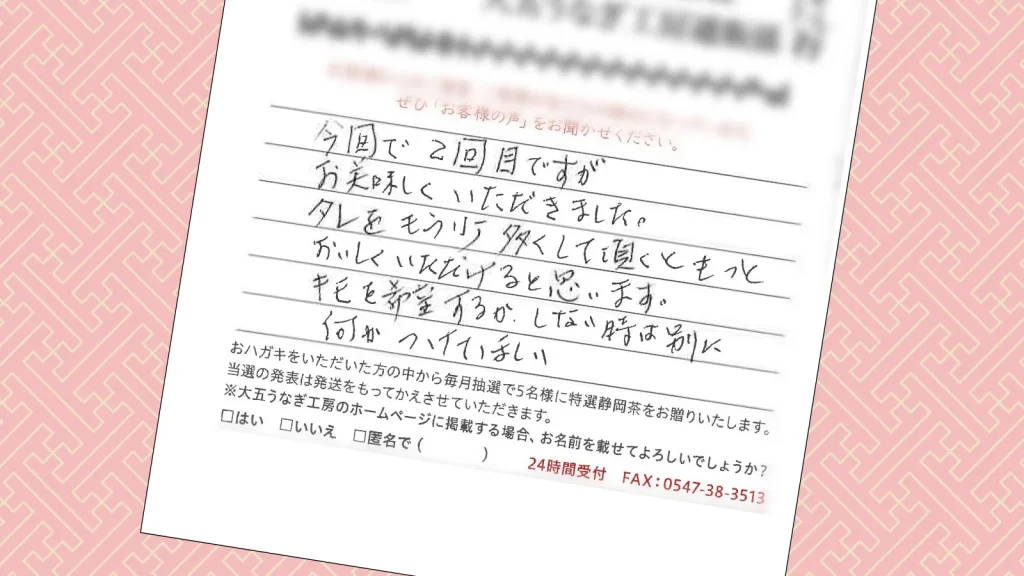 大五うなぎ工房通販部
ぜひ「お客様の声」をお聞かせください。
今回で2回目ですが
お美味しくいただきました。
タレをもう少し多くして頂くともっと
おいしくいただけると思います。
キモを希望するか、しない時は別に
何かつけてほしい
おハガキをいただいた方の中から毎月抽選で5名様に特選静岡茶をお贈りいたします。
当選の発表は発送をもってかえさせていただきます。
※大五うなぎ工房のホームページに掲載する場合、お名前を載せてよろしいでしょうか?
□はい □いいえ □匿名で( )
24時間受付 FAX:0547-38-3513